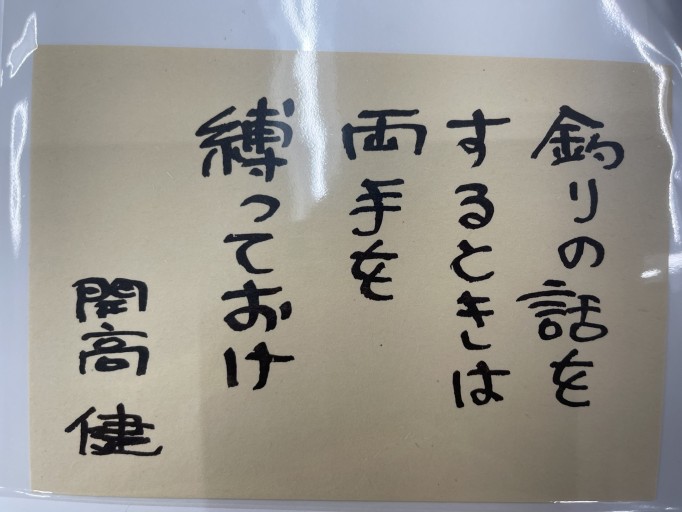 釣りの話を
するときは
両手を
縛っておけ
開高 健